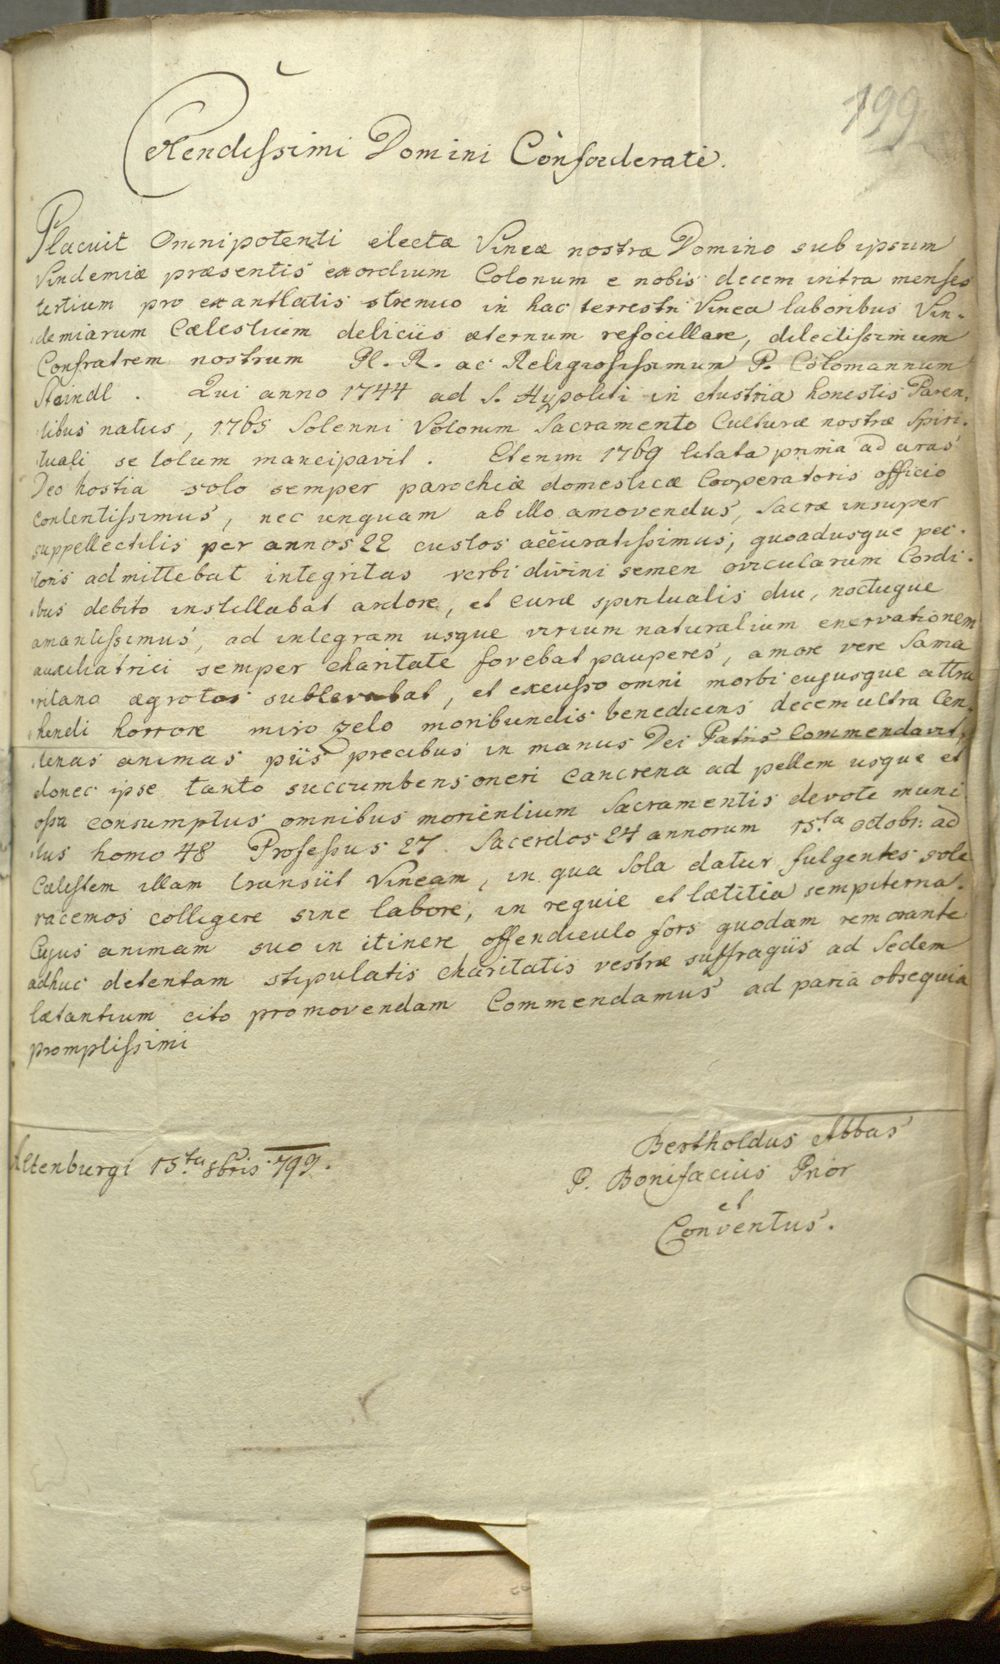 199
Rendissimi Domini Confoederati.
Placuit Omnipotenti electæ Vineæ nostræ Domino sub ipsum
Vindemiæ præsentis exordium Colonum e nobis decem intra menses
tertium pro exantlatis strenuo in hac terrestri Vinea laboribus Vin-
demiarum Cælestium deliciis æternum refocillare, dilectissimum
Confratrem nostrum Pl. R. ac Religiosissimum P. Colomannum
Staindl. Qui anno 1744 ad S. Hypoliti in Austria honestis Paren-
tibus natus, 1765 Solenni Votorum Sacramento Culturæ nostræ Spiri-
tuali se totum mancipavit. Etenim 1769 litata prima ad aras
Deo hostia solo semper parochiæ domesticæ Cooperatoris officio
contentissimus, nec unquam ab illo amovendus, Sacræ insuper
suppellectilis per annos 22 custos accuratissimus, quoadusque pec-
toris admittebat integritas verbi divini semen ovicularum Cordi-
bus debito instillabat ardore, et curæ spiritualis diu, noctuque
amantissimus, ad integram usque virium naturalium enervationem
auxiliatrici semper charitate fovebat pauperes, amore vere Sama
ritano ægrotos sublevabat, et excusso omni morbi cujusque attra
hendi horrore miro zelo moribundis benedicens decem ultra Cen-
tenas animas piis precibus in manus Dei Patris Commendavit,
donec ipse tanto succumbens oneri cancrena ad pellem usque et
ossa consumptus omnibus morientium Sacramentis devote muni
tus homo 48 Professus 27 Sacerdos 24 annorum 15.ta octobr. ad
Cælestem illam transiit Vineam, in qua Sola datur fulgentes sole
racemos colligere sine labore, in requie et lætitia sempiterna.
Cujus animam suo in itinere offendiculo fors quodam remorante
adhuc detentam stipulatis charitatis vestræ suffragiis ad Sedem
lætantium cito promovendam Commendamus ad paria obsequia
promptissimi
Altenburgi 15.ta 8bris 799.
Bertholdus Abbas
P. Bonifacius Prior
et
Conventus.